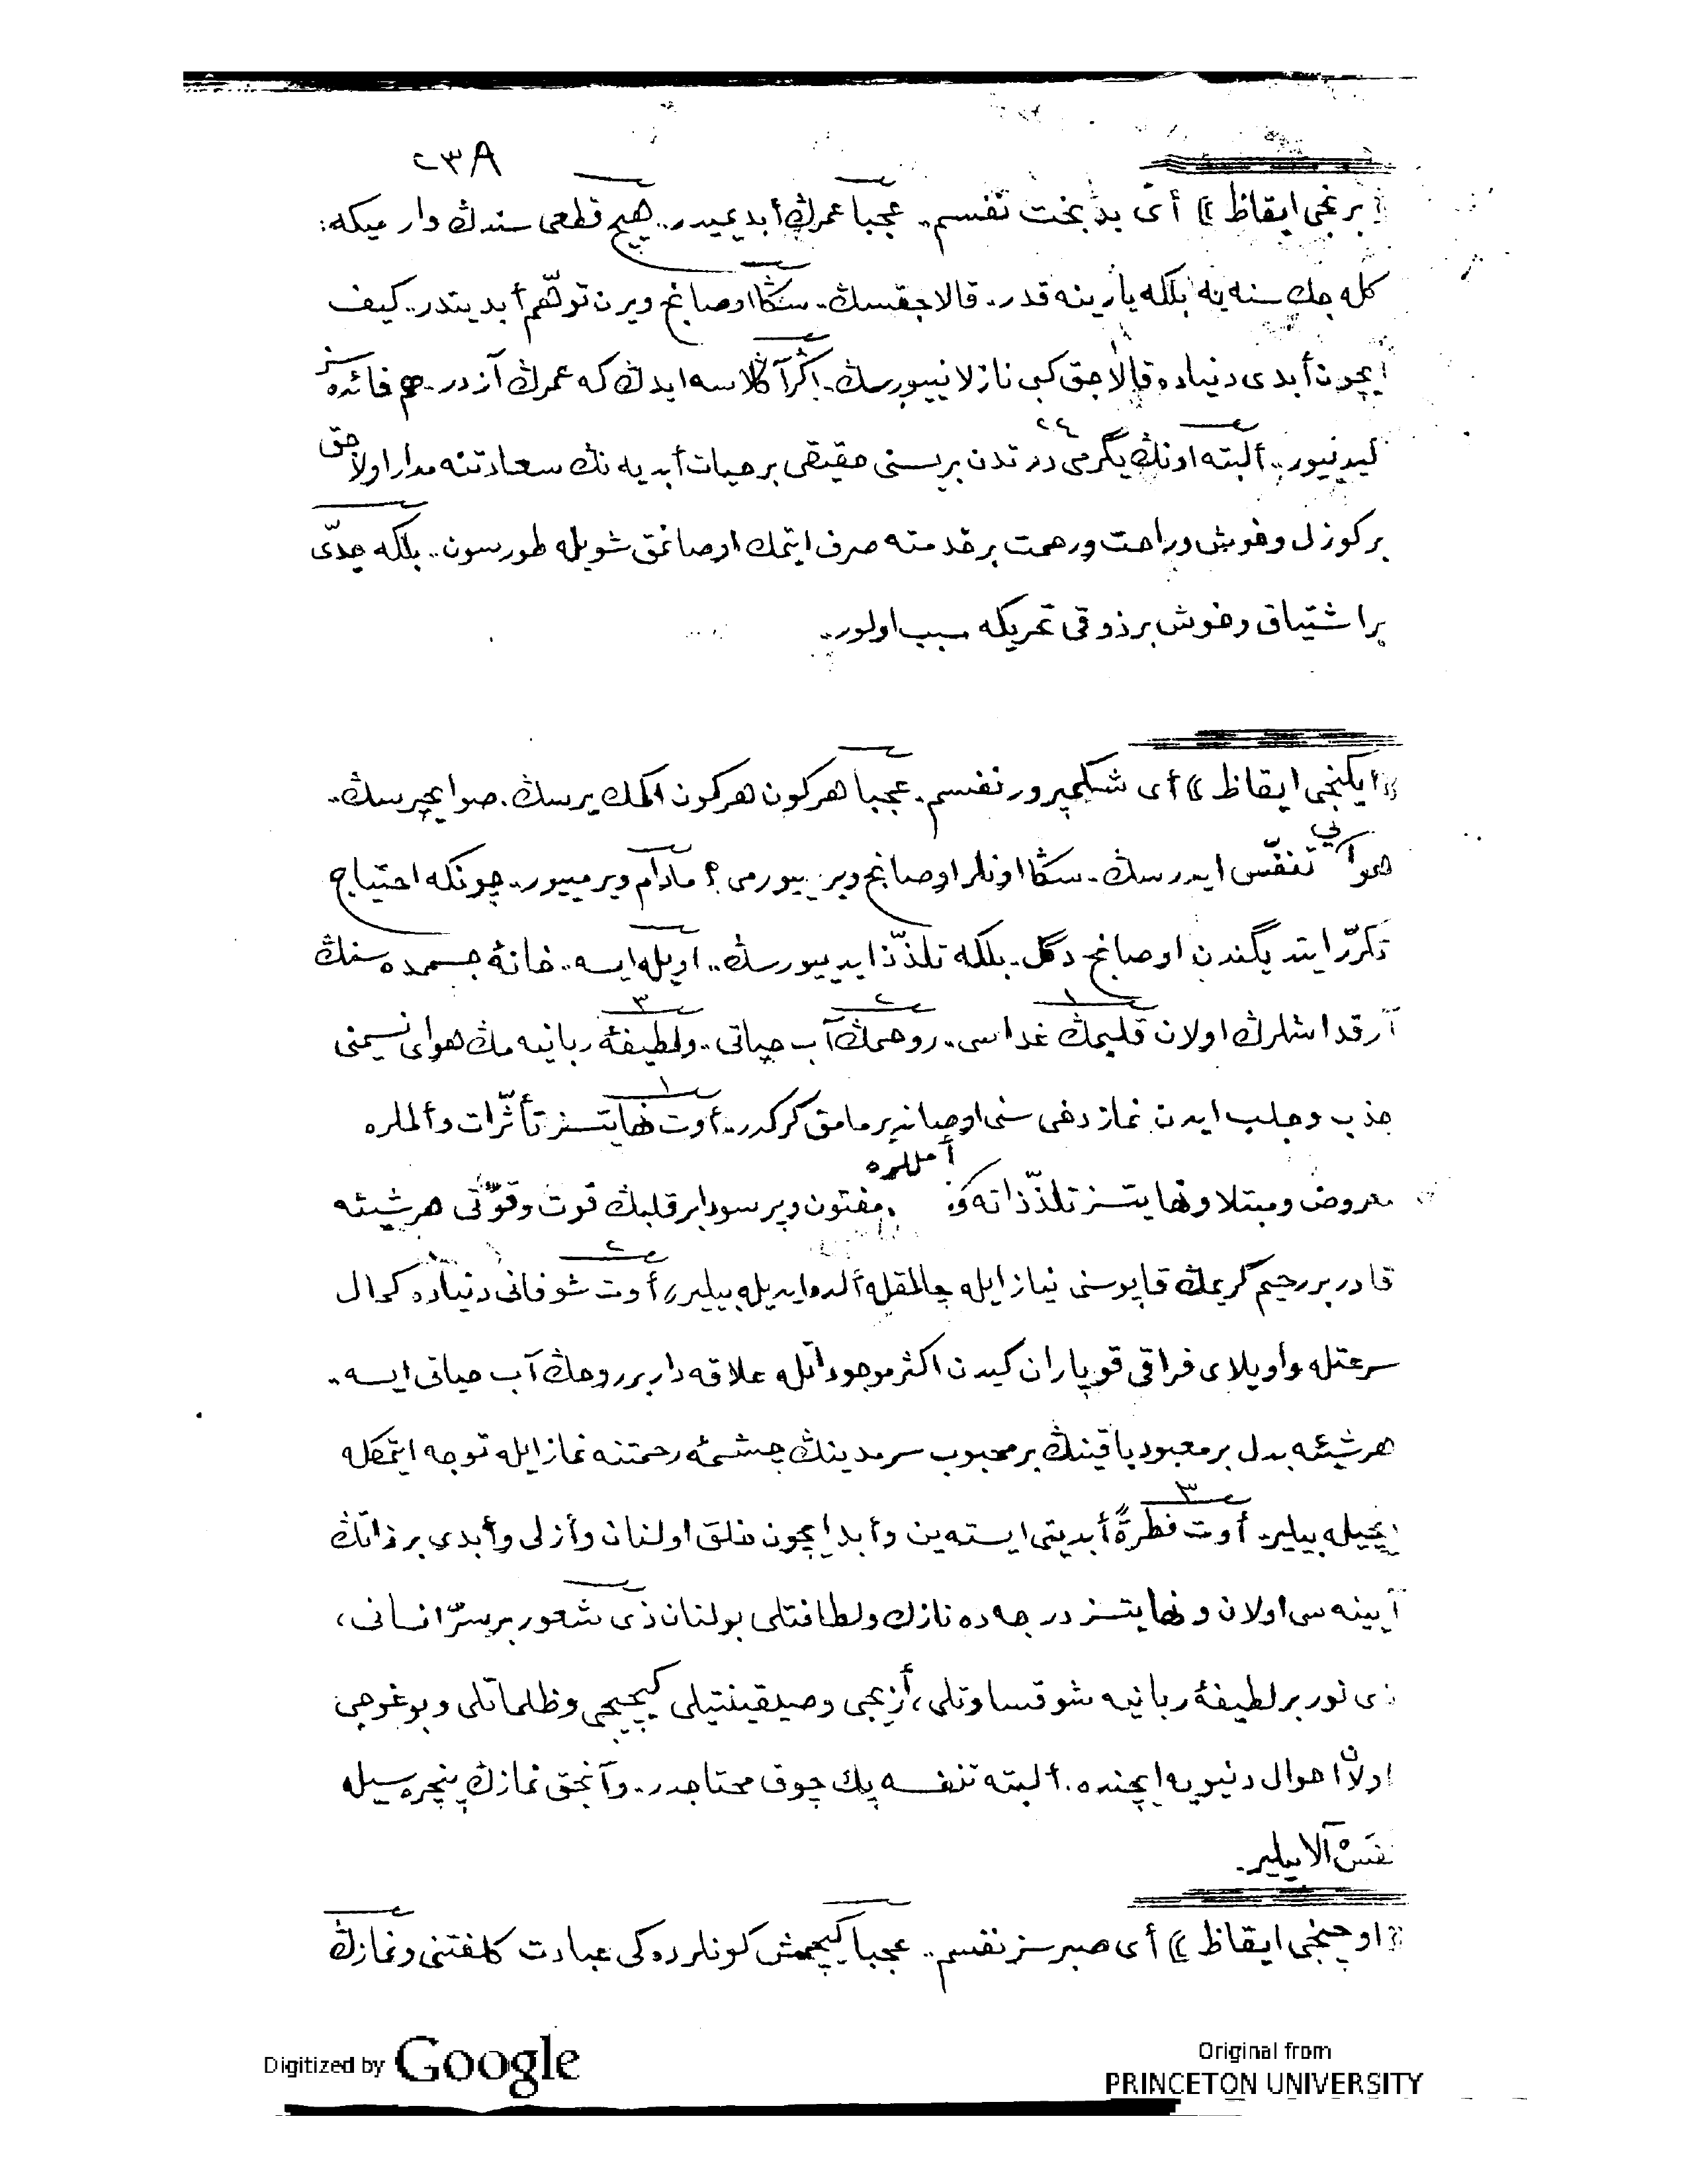 ٢٣٨
﴿برنجى ايقاظ﴾ أى بدبخت نفسم.. عجبا عمرڭ أبديميدر.. هيچ قطعى سندڭ وار ميكه:
كله جك سنه يه بلكه يارينه قدر.. قالاجقسڭ.. سڭا اوصانج ويرن توهّم أبديتدر.. كيف
ايچون أبدى دنياده قالاجق كبى نازلانييورسڭ. اڭر آڭلاسه ايدڭ كه عمرڭ آزدر. هم فائده سز
كيدييور.. ألبته اونڭ يگرمى ٢٤ درتدن بريسنى حقيقى بر حيات أبديه نڭ سعادتنه مدار اولاجق
بر كوزل وخوش وراحت ورحمت بر خدمته صرف ايتمك اوصانمق شويله طورسون.. بلكه جدّى
بر اشتياق وخوش بر ذوقى تحريكه سبب اولور..
﴿ايكنجى ايقاظ﴾ أى شكمپرور نفسم. عجبا هركون هركون اكمك يرسڭ. صو ايچرسڭ..
هوايى تنفّس ايدرسڭ. سڭا اونلر اوصانج ويرييورمى؟ مادام ويرمييور.. چونكه احتياج
تكرّر ايتديگندن اوصانج دگل. بلكه تلذّذ ايدييورسڭ.. اويله ايسه.. خانۀ جسممده سنڭ
آرقداشلرڭ اولان ١ قلبمڭ غداسى.. ٢ روحمڭ آب حياتى.. ٣ ولطيفۀ ربانيه مڭ هواى نسيمنى
جذب وجلب ايدن نماز دخى سنى اوصانديرمامق كركدر.. ١ أوت نهايتسز تأثّرات وألملره
معروض ومبتلا ونهايتسز تلذّذاته و أمللره مفتون وپر سودا بر قلبڭ قوت وقوّتى هر شيئه
قادر بر رحيم كريمڭ قاپوسنى نياز ايله چالمقله ألده ايديله بيلير، ٢ أوت شو فانى دنياده كمال
سرعتله واويلاى فراقى قوپاران كيدن اكثر موجوداتله علاقه دار بر روحڭ آب حياتى ايسه..
هر شيئه بدل بر معبود باقينڭ بر محبوب سرمدينڭ چشمۀ رحمتنه نماز ايله توجه ايتمكله
ايچيله بيلير. ٣ أوت فطرةً أبديتى ايسته ين وأبد ايچون خلق اولنان وأزلى وأبدى بر ذاتڭ
آيينه سى اولان ونهايتسز درجه ده نازك ولطافتلى بولنان ذى شعور بر سرّ انسانى،
ذى نور بر لطيفۀ ربانيه شو قساوتلى، أزيجى وصيقينتيلى كيچيجى وظلماتلى وبوغوجى
اولان احوال دنيويه ايچنده. ألبته تنفسه پك چوق محتاجدر.. وآنجق نمازڭ پنجره سيله
نفس آلابيلير.
﴿اوچنجى ايقاظ﴾ أى صبرسز نفسم.. عجبا كيچمش كونلرده كى عبادت كلفتنى ونمازڭ
Digitized by Google
Original from
PRINCETON UNIVERSITY